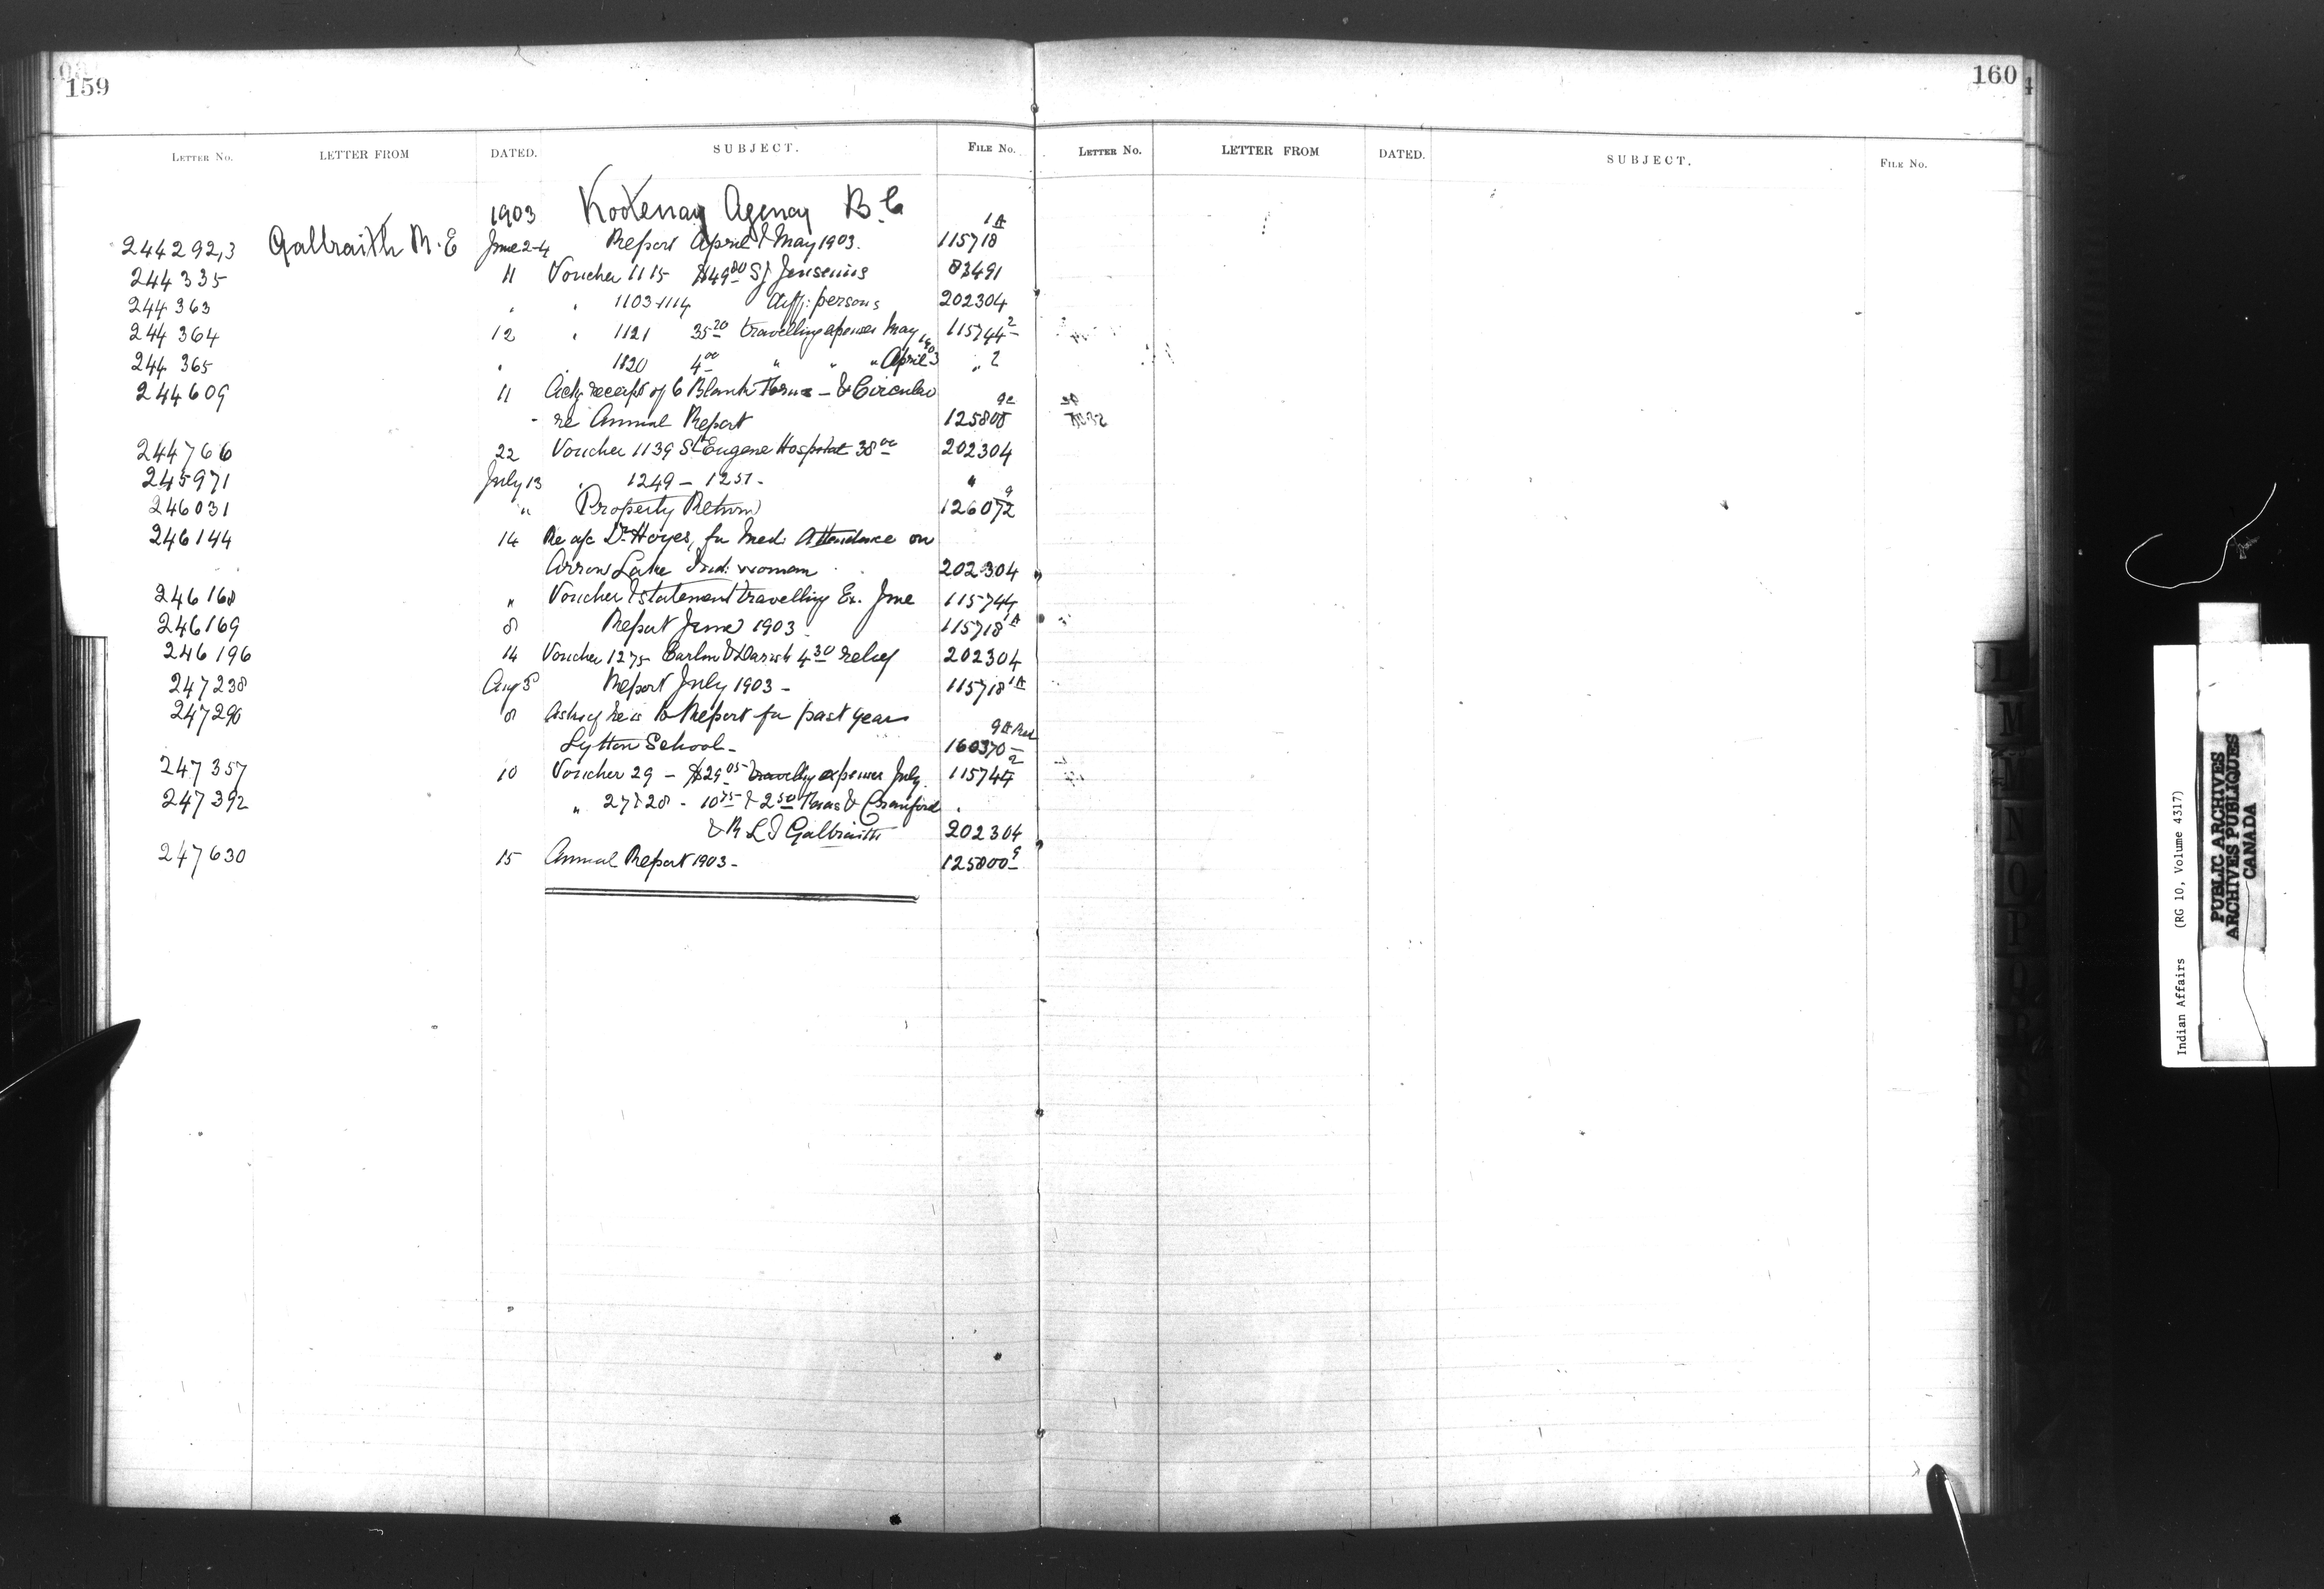 159
160
LETTER No. LETTER FROM DATED. SUBJECT. FILE No. LETTER No. LETTER FROM DATED. SUBJECT. FILE No.
1903 Kootenay Agency B.C
244292,3 Galbraith R.E June 2-4 Report April & May 1903. 115718 1A
244335 11 Voucher 1115 $49 80 S J Jensenius 83491
244363 " " 1103-1114 diff: persons 202304
244364 12 " 1121 35 20 travelling expenses May 115744 2
244365 " " 1820 4 00 " " " April 1903 " 2
244609 11 Ackg receipt of 6 Blank Forms - & Circular
re Annual Report 125808
244766 22 Voucher 1139 St Eugene Hospital 38 00 202304
245971 July 13 " 1249 - 1251 - "
246031 " Property Return 126072 9
246144 14 Re a/c Dr. Hoyes, for Med: Attendance on
Arrow Lake Ind: woman 202304
246168 " Voucher & statement travelling Ex. June 115744
246169 8 Report June 1903. 115718 1A
246196 14 Voucher 1275 Carlin & 4 30 relief 202304
247238 Aug 5 Report July 1903 - 115718 1A
247296 8 Asks if he is to Report for past year
Lytton School - 160370
247357 10 Voucher 29 - $29 05 travellg expenses July. 115744 2
247392 " 27 & 28 - 10 75 & 2 50 &
& R L T Galbraith 202304
247630 15 Annual Report 1903 - 125800 9
L
M
N
O
P
Indian Affairs (RG 10, Volume 4317)
PUBLIC ARCHIVES
ARCHIVES PUBLIQUES
CANADA